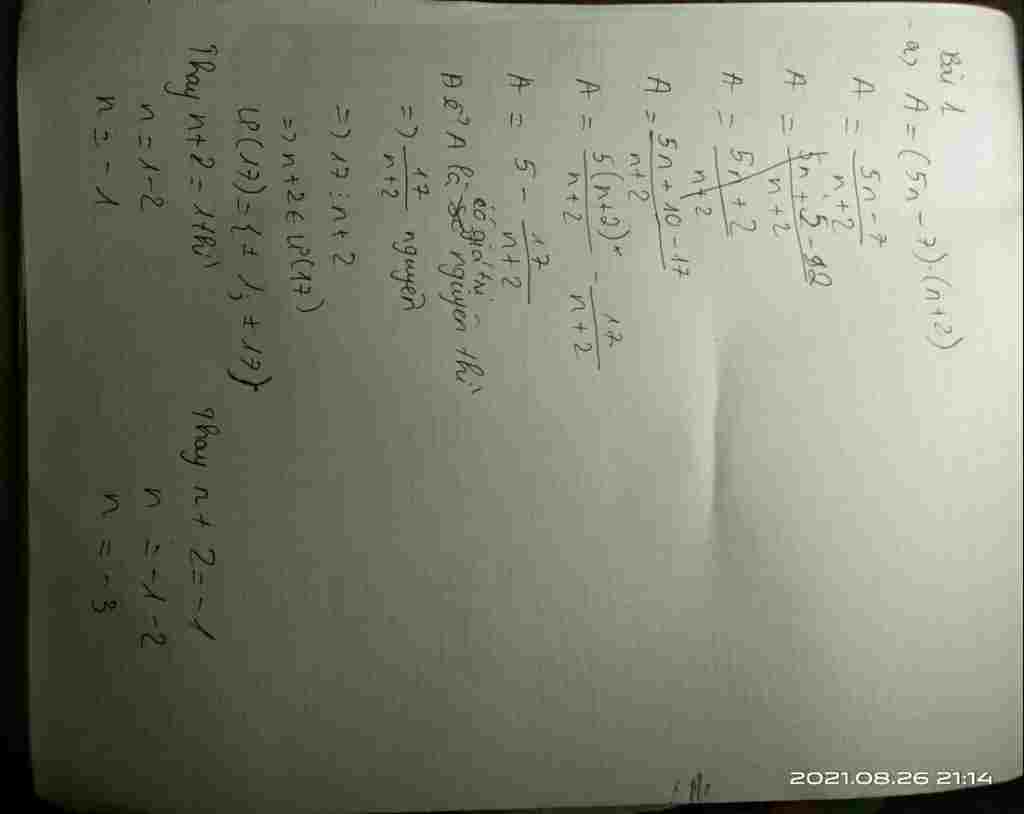 Bài 1
a) A = (5n - 7) : (n+2)
A = 5n - 7 / n+2
A = 5n + 5 - 12 / n+2
A = 5n + 2 / n+2
A = 5n + 10 - 17 / n+2
A = 5(n+2) / n+2 - 17 / n+2
A = 5 - 17 / n+2
Để A có giá trị nguyên thì
=> 17 / n+2 nguyên
=> 17 ⋮ n+2
=> n+2 ∈ Ư(17)
Ư(17) = {± 1; ± 17}
Thay n+2 = 1 thì
n = 1-2
n = -1
Thay n + 2 = -1
n = -1 - 2
n = -3
2021.08.26 21:14